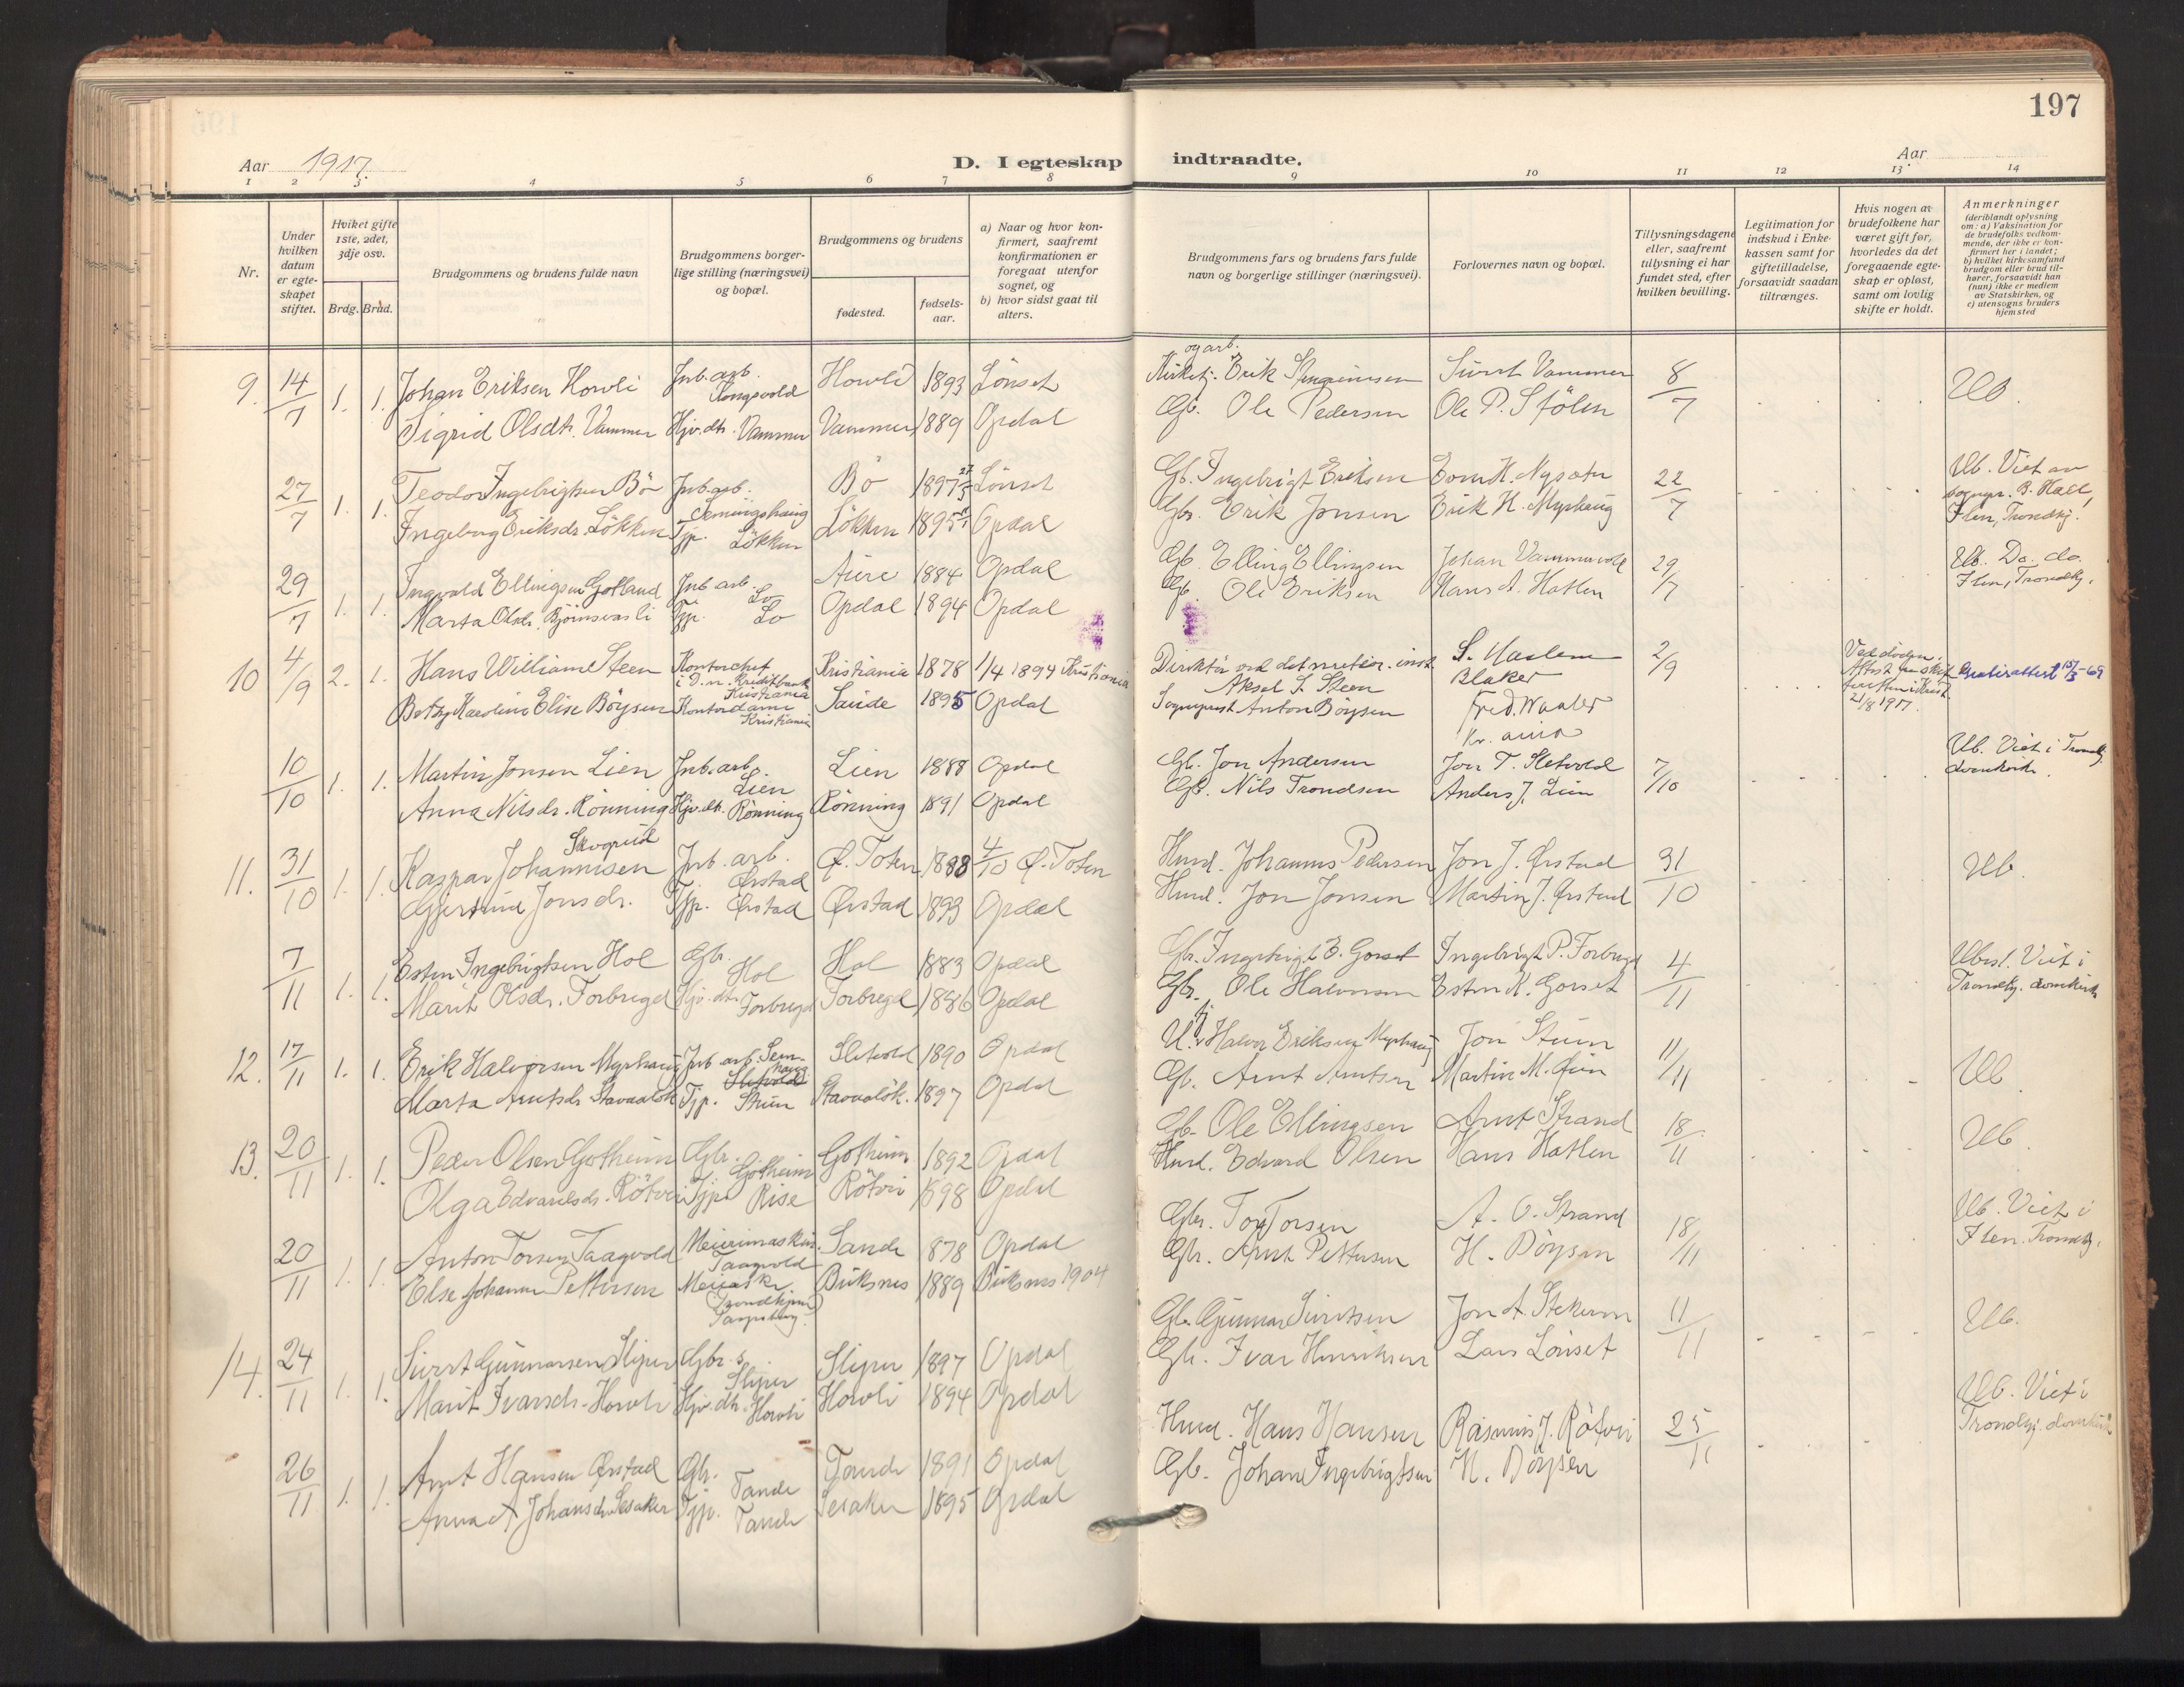 197
Aar 1917. D. I egteskap indtraadte. Aar
1 2 3 4 5 6 7 8 9 10 11 12 13 14
Nr.
Under hvilken datum er egteskapet stiftet.
Hviket gifte 1ste, 2det, 3dje osv.
Brdg. Brud.
Brudgommens og brudens fulde navn
Brudgommens borgerlige stilling (næringsvei) og bopæl.
Brudgommens og brudens
fødested.
fødselsaar.
a) Naar og hvor konfirmert, saafremt konfirmationen er foregaat utenfor sognet, og
b) hvor sidst gaat til alters.
Brudgommens fars og brudens fars fulde navn og borgerlige stillinger (næringsvei).
Forlovernes navn og bopæl.
Tillysningsdagene eller, saafremt tillysning ei har fundet sted, efter hvilken bevilling.
Legitimation for indskud i Enkekassen samt for giftetilladelse, forsaavidt saadan tiltrænges.
Hvis nogen av brudefolkene har været gift før, hvorledes da det foregaaende egteskap er opløst, samt om lovlig skifte er holdt.
Anmerkninger (deriblandt oplysning om: a) Vaksination for de brudefolks vedkommende, der ikke er konfirmert her i landet; b) hvilket kirkesamfund brudgom eller brud tilhører, forsaavidt han (hun) ikke er medlem av Statskirken, og c) utensogns bruders hjemsted
9. 14/7 1. 1. Johan Eriksen Howli Jnb. arb. Kongsvold Howli 1893 Lönset og arb. Kirketj. Erik Sivert Vammer 8/7 Ub.
Sigrid Olsdtr. Vammer Hjv. dtr. Vammer Vammer 1889 Opdal Gb. Ole Pedersen Ole P. Stölen
27/7 1. 1. Teodor Ingebrigtsen Bö Jnb. arb. Semingshaug Bö 1897 27/3 Lönset Gb. Ingebrigt Eriksen H. Nysæter 22/7 Ub. Viet av sognepr. B. Hall, Ilen, Trondhj.
Ingeborg Eriksdr. Lökken Tjp. Lökken Lökken 1895 Opdal Gbr. Erik Jonsen Erik H. Myrhaug
29/7 1. 1. Ingvald Ellingsen Gotland Jnb. arb. Lo Aure 1884 Opdal Gb. Elling Ellingsen Johan Vammervold 29/7 Ub. Do. do. Ilen, Trondhj.
Marta Olsdr. Björnsvasli Tjp. Lo Opdal 1894 Opdal Gb. Ole Eriksen Hans A. Hatlen
10 4/9 2. 1. Hans William Steen Kontorchef i D. n. Kreditbank Kristiania Kristiania 1878 1/4 1894 Kristiania Direktör ved det meteor. inst. Aksel S. Steen S. Haslem Blaker 2/9 Ved döden. Attest fra skifteretten i Krist. 21/8 1917. Gratisattest 15/3-69
Betzy Karoline Elise Böysen Kontordame Kristiania Saude 1895 Opdal Sogneprest Anton Böysen Fred. Waaler Kr. ania
10/10 1. 1. Martin Jonsen Lien Jnb. arb. Lien Lien 1888 Opdal Gb. Jon Andersen Jon T. Sletvold 7/10 Ub. Viet i Trondhj. domkirke.
Anna Nilsdr. Rönning Hjv. dt. Rönning Rönning 1891 Opdal Gb. Nils Trondsen Anders J. Lien
11. 31/10 1. 1. Kaspar Johannesen Skogrud Jnb. arb. Ørstad Ø. Toten 1888 4/10 Ø. Toten Husd. Johannes Pedersen Jon J. Ørstad 31/10 Ub.
Gjertrud Jonsdr. Tjp. Ørstad Ørstad 1893 Opdal Husd. Jon Jonsen Martin J. Ørstad
7/11 1. 1. Esten Ingebrigtsen Hol Gbr. Hol Hol 1883 Opdal Gb. Ingebrigt E. Gorset Ingebrigt P. Forbregd 4/11 Ubesl. Viet i Trondhj. domkirk
Marit Olsdr. Forbregd Hjv. dtr. Forbregd Forbregd 1886 Opdal Gbr. Ole Halvorsen Esten K. Gorset
12. 17/11 1. 1. Erik Halvorsen Myrhaug Jnb. arb. Sem-haug Sletvold Sletvold 1890 Opdal Halvor Eriksen Myrhaug Jon Stuen 11/11 Ub.
Marta Arntsdr. Stavaalök. Tjp. Stuen Stavaalök. 1897 Opdal Gb. Arnt Arntsen Martin M. Öien
13. 20/11 1. 1. Peder Olsen Gotheim Gbr. Gotheim Gotheim 1892 Opdal Gb. Ole Ellingsen Arnt Strand 18/11 Ub.
Olga Edvardsdr. Rötvei Tjp. Rise Rötvei 1898 Opdal Husd. Edvard Olsen Hans Hatlen
20/11 1. 1. Anton Torsen Taagvold Meierimaskin. Taagvold Sande 1878 Opdal Gbr. Tor Torsen A. O. Strand 18/11 Ub. Viet i Ilen. Trondhj.
Else Johanne Pettersen Meierske Trondhjem Buksnes 1889 Buksnes 1904 Gbr. Arnt Pettersen H. Böysen
14. 24/11 1. 1. Sivert Gunnarsen Sliper Gbr. s. Sliper Sliper 1897 Opdal Gb. Gunnar Sivertsen Jon A. Stekerm 11/11 Ub.
Marit Ivarsdr. Howli Hjv. dtr. Howli Howli 1894 Opdal Gb. Ivar Henriksen Lars Lönset
26/11 1. 1. Arnt Hansen Ørstad Gbr. Tande Tande 1891 Opdal Husd. Hans Hansen Rasmus J. Rötvei 25/11 Ub. Viet i Trondhj. domkirk
Anna A Johansdr. Sesaker Tjp. Tande Sesaker 1895 Opdal Gb. Johan Ingebrigtsen H. Böysen